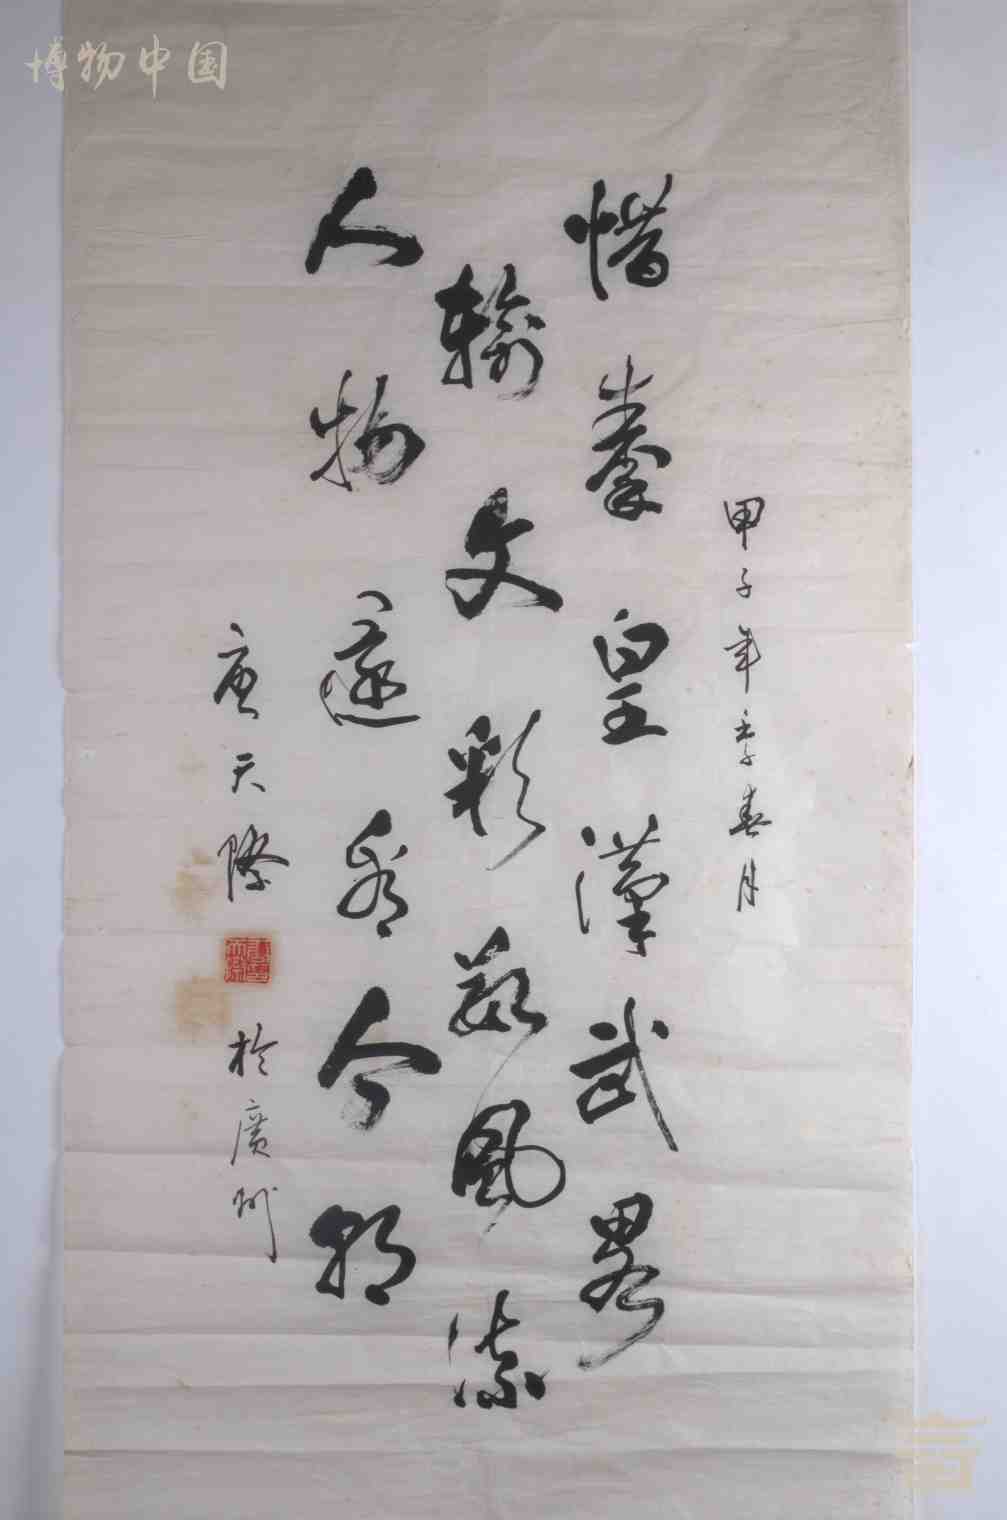 博物中国
甲子年季春月
惜秦皇漢武略
輸文彩數風流
人物還看今朝
唐天際 於廣州